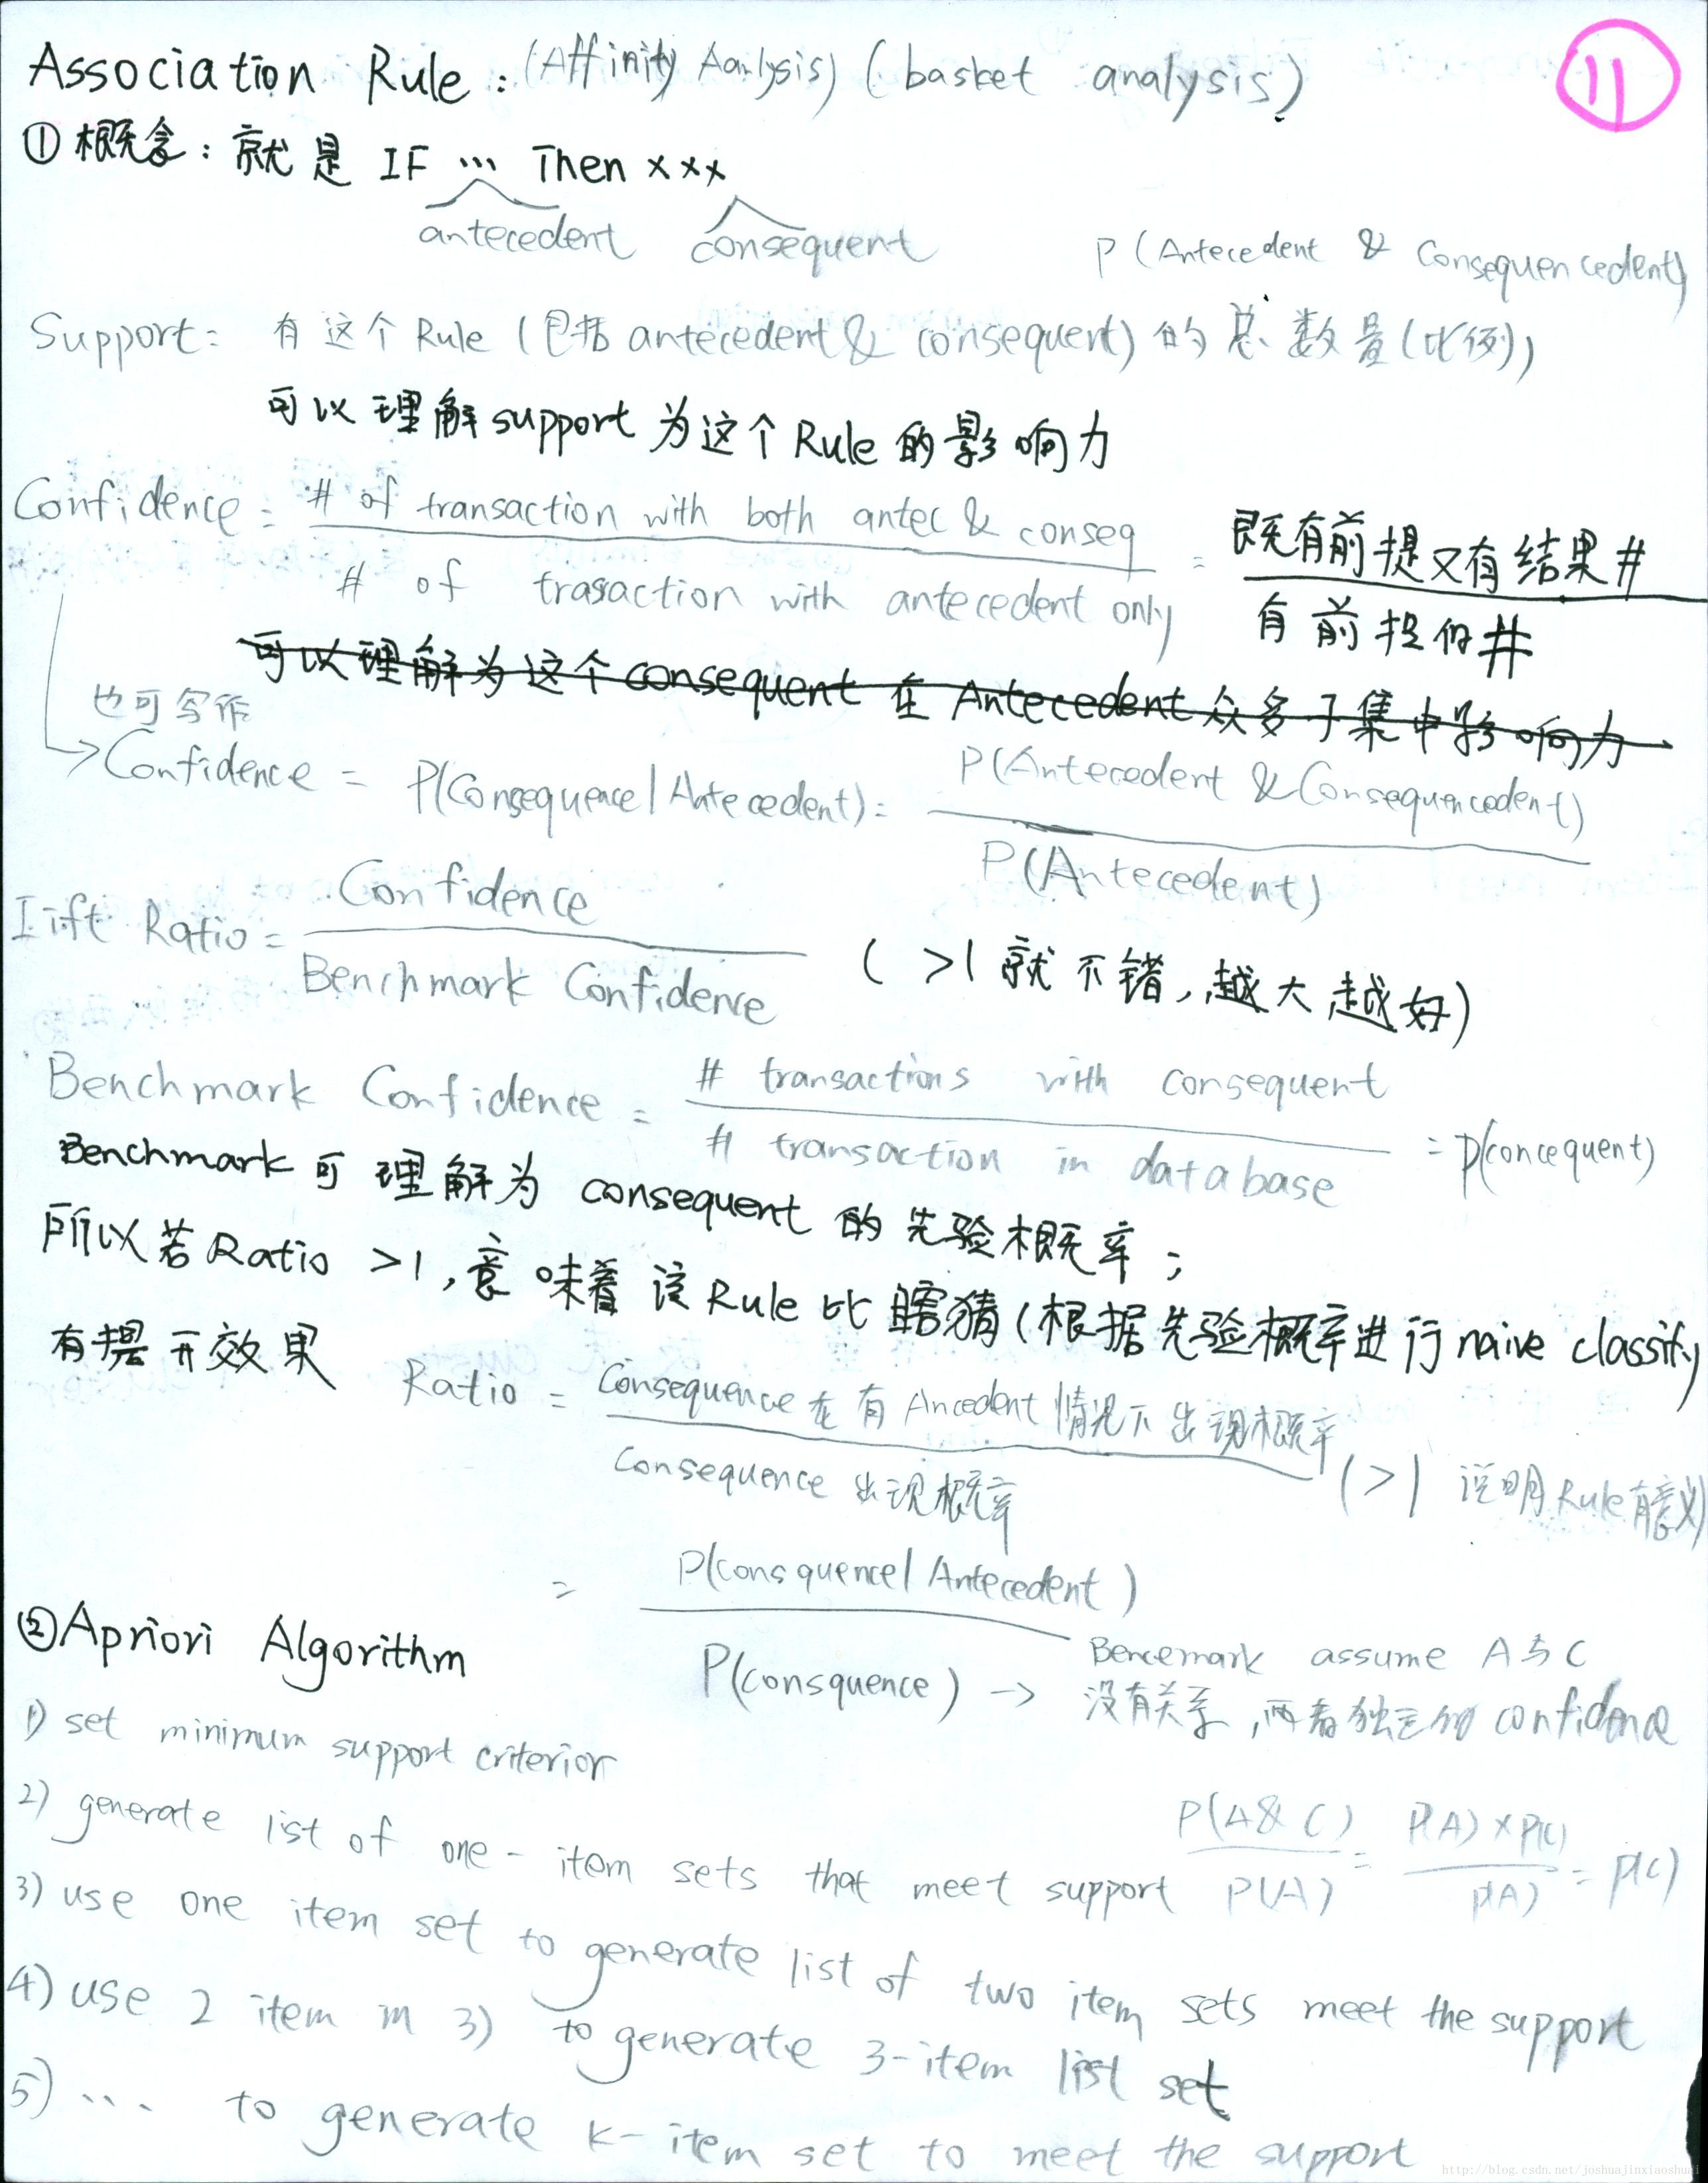 Association Rule : (Affinity Aanlysis) (basket analysis)
11
① 概念：就是 IF ... Then ×××
antecedent consequent
P (Antecedent & Consequencedent)
Support: 有这个 Rule (包括 antecedent & consequent) 的总数量(比例)
可以理解 support 为这个 Rule 的影响力
Confidence = # of transaction with both antec & conseq = 既有前提又有结果 #
# of trasaction with antecedent only 有前提的 #
可以理解为这个 consequent 在 Antecedent 众多子集中影响力
也可写作
→ Confidence = P(Consequence | Antecedent) = P(Antecedent & Consequencedent)
P(Antecedent)
Lift Ratio = Confidence
Benchmark Confidence ( >1 就不错, 越大越好)
Benchmark Confidence = # transactions with consequent
# transaction in database = P(concequent)
Benchmark 可理解为 consequent 的先验概率;
所以若 Ratio >1, 意味着该 Rule 比瞎猜 (根据先验概率进行 naive classify
有提升效果
Ratio = Consequence 在有 Ancedent 情况下出现概率
Consequence 出现概率 ( >1 说明 Rule 有意义)
= P(consquence | Antecedent)
P(consquence) → Bencemark assume A与C
没有关系, 两者独立的 confidence
P(A & C) = P(A) × P(C) = P(C)
P(A) P(A)
② Apriori Algorithm
1) set minimum support criterior
2) generate list of one - item sets that meet support
3) use one item set to generate list of two item sets meet the support
4) use 2 item in 3) to generate 3-item list set
5) ... to generate k- item set to meet the support